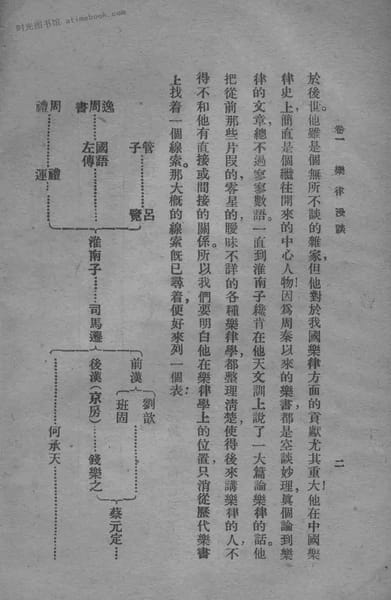 时光图书馆 atimebook.com
卷一 樂律漫談 二
於後世。他雖是個無所不談的雜家，但他對於我國樂律方面的貢獻尤其重大！他在中國樂
律史上，簡直是個繼往開來的中心人物！因爲周秦以來的樂書，都是空談妙理，眞個論到樂
律的文章，總不過寥寥數語。一直到淮南子纔肯在他天文訓上說了一大篇論樂律的話。他
把從前那些片段的，零星的，曖昧不詳的各種樂律學，都整理清楚，使得後來講樂律的人，不
得不和他有直接或間接的關係。所以我們要明白他在樂律學上的位置，只消從歷代樂書
上找着一個線索。那大概的線索旣已尋着，便好來列一個表：
管子……呂覽
逸周書……國語 左傳
周禮……禮運
淮南子……司馬遷
前漢 劉歆 班固
後漢（京房）……錢樂之
蔡元定……
何承天……